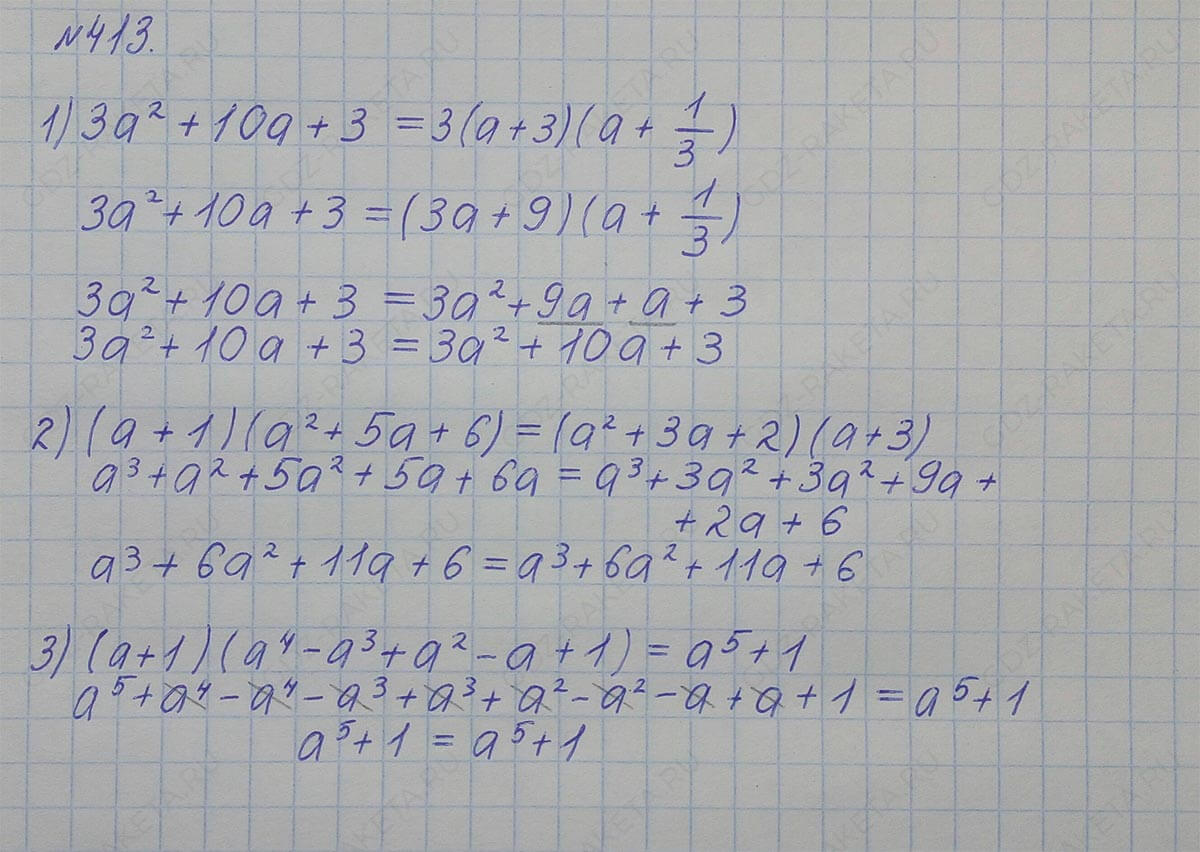 №413.
1) 3a² + 10a + 3 = 3(a + 3)(a + 1/3)
3a² + 10a + 3 = (3a + 9)(a + 1/3)
3a² + 10a + 3 = 3a² + 9a + a + 3
3a² + 10a + 3 = 3a² + 10a + 3
2) (a + 1)(a² + 5a + 6) = (a² + 3a + 2)(a + 3)
a³ + a² + 5a² + 5a + 6a = a³ + 3a² + 3a² + 9a +
+ 2a + 6
a³ + 6a² + 11a + 6 = a³ + 6a² + 11a + 6
3) (a + 1)(a⁴ - a³ + a² - a + 1) = a⁵ + 1
a⁵ + a⁴ - a⁴ - a³ + a³ + a² - a² - a + a + 1 = a⁵ + 1
a⁵ + 1 = a⁵ + 1
GDZ-RAKETA.RU